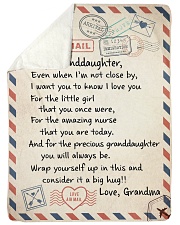 MAIL
nddaughter,
Even when I'm not close by,
I want you to know I love you
For the little girl
that you once were,
For the amazing nurse
that you are today.
And for the precious granddaughter
you will always be.
Wrap yourself up in this and
consider it a big hug!!
Love, Grandma
LOVE
AIR MAIL